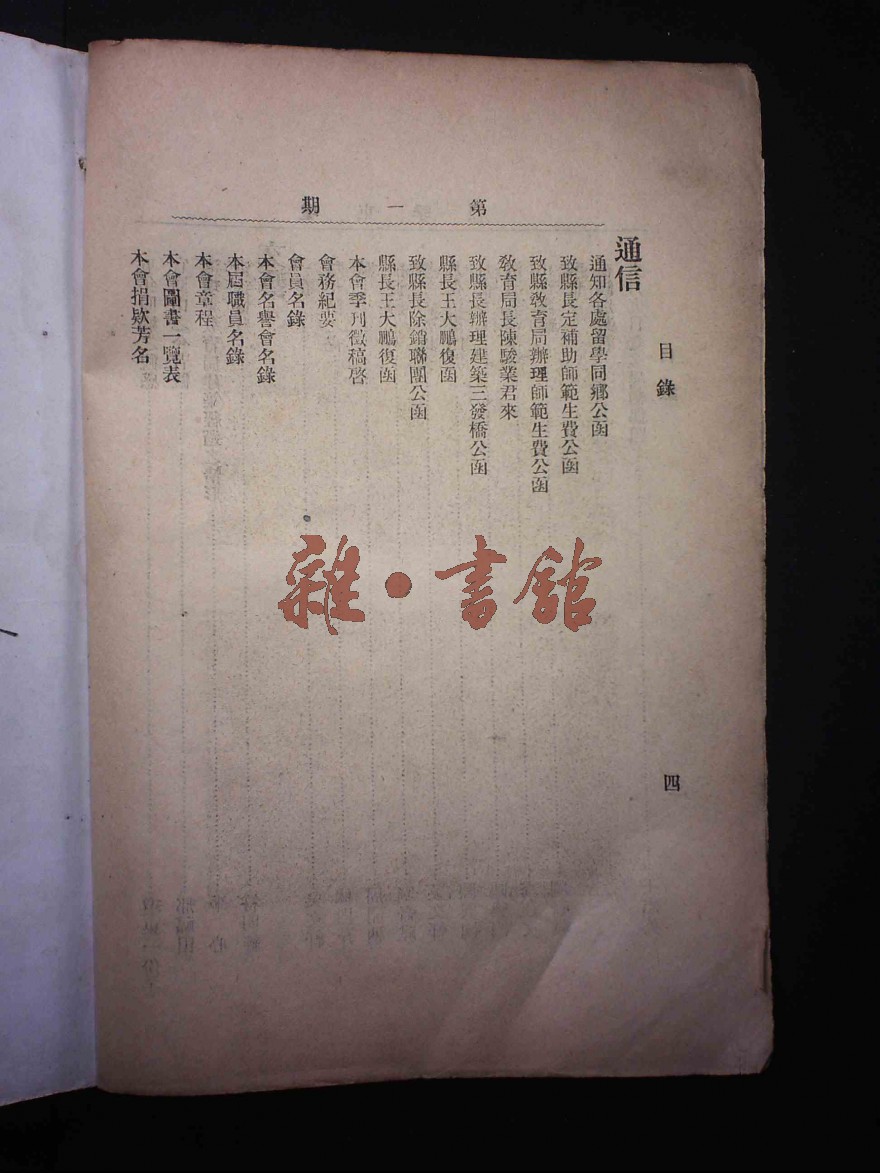 第一期
目錄
四
通信
通知各處留學同鄉公函
致縣長定補助師範生費公函
致縣教育局辦理師範生費公函
教育局長陳駿業君來
致縣長辦理建築三發橋公函
縣長王大鵬復函
致縣長除鎓聯團公函
縣長王大鵬復函
本會季刊徵稿啓
會務紀要
會員名錄
本會名譽會名錄
本屆職員名錄
本會章程
本會圖書一覽表
本會捐欵芳名
雜·書館